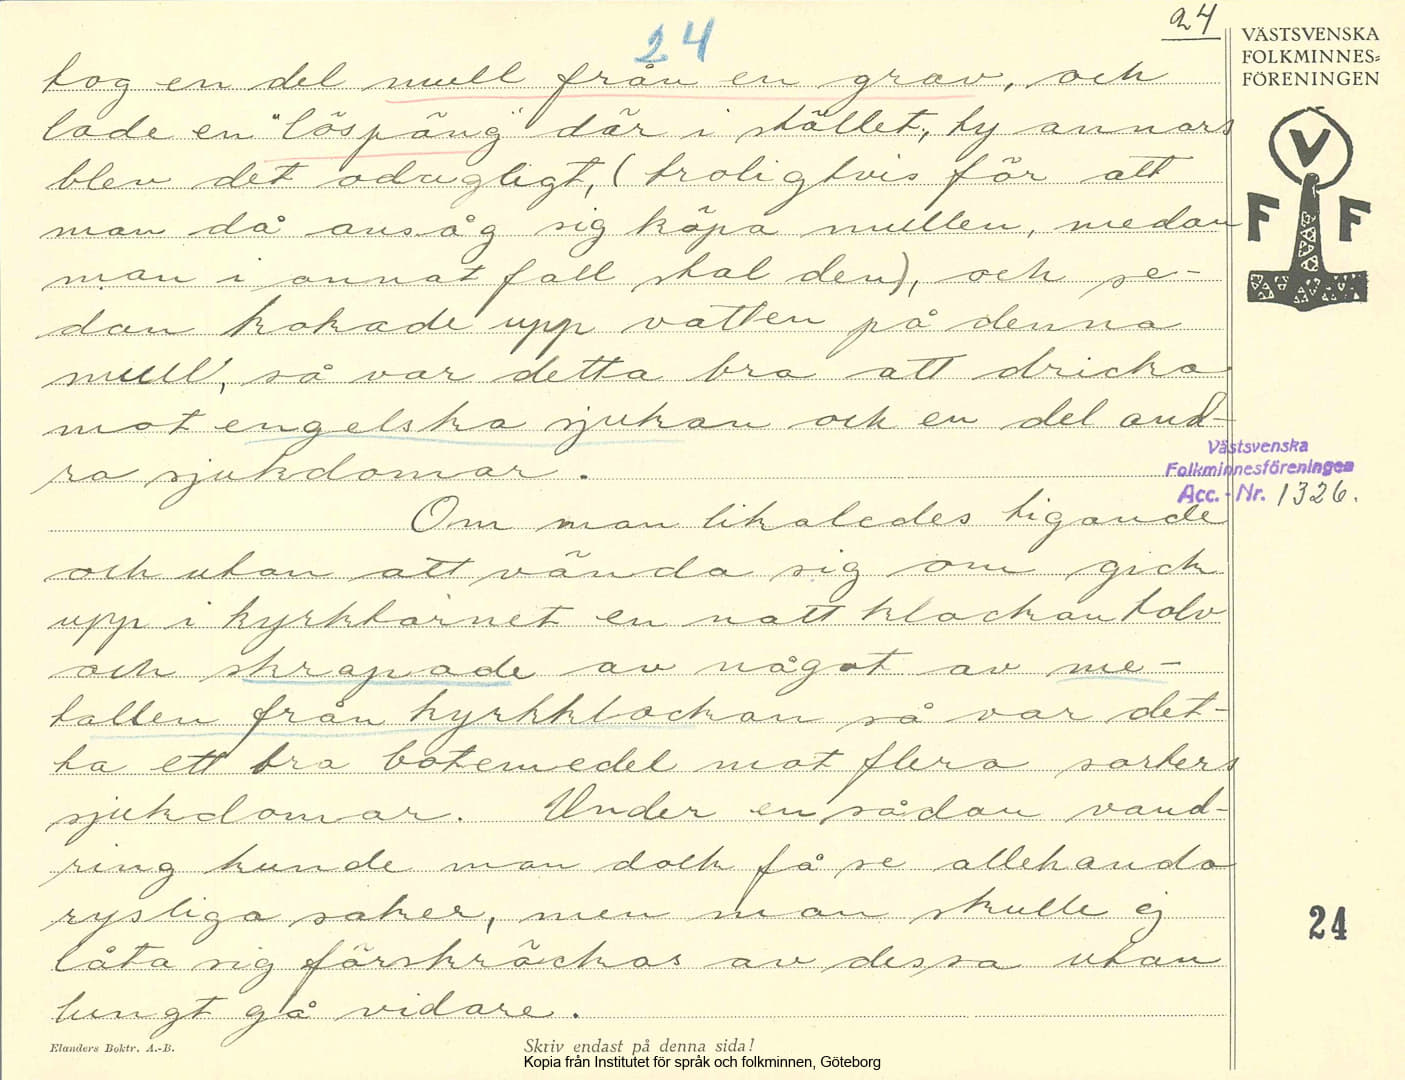 24
24
VÄSTSVENSKA
FOLKMINNES=
FÖRENINGEN
V
F F
tog en del mull från en grav, och
lade en "löspäng" där i stället, ty annars
blev det odugligt, (troligtvis för att
man då ansåg sig köpa mullen, medan
man i annat fall stal den), och se-
dan kokade upp vatten på denna
mull, så var detta bra att dricka
mot engelska sjukan och en del and-
ra sjukdomar.
Västsvenska
Folkminnesföreningen
Acc. - Nr. 1326.
Om man likaledes tigande
och utan att vända sig om gick
upp i kyrktornet en natt klockan tolv
och skrapade av något av me-
tallen från kyrkklockan så var det-
ta ett bra botemedel mot flera sorters
sjukdomar. Under en sådan vand-
ring kunde man dock få se allehanda
rysliga saker, men man skulle ej
låta sig förskräckas av dessa utan
lungt gå vidare.
24
Elanders Boktr. A.-B.
Skriv endast på denna sida!
Kopia från Institutet för språk och folkminnen, Göteborg